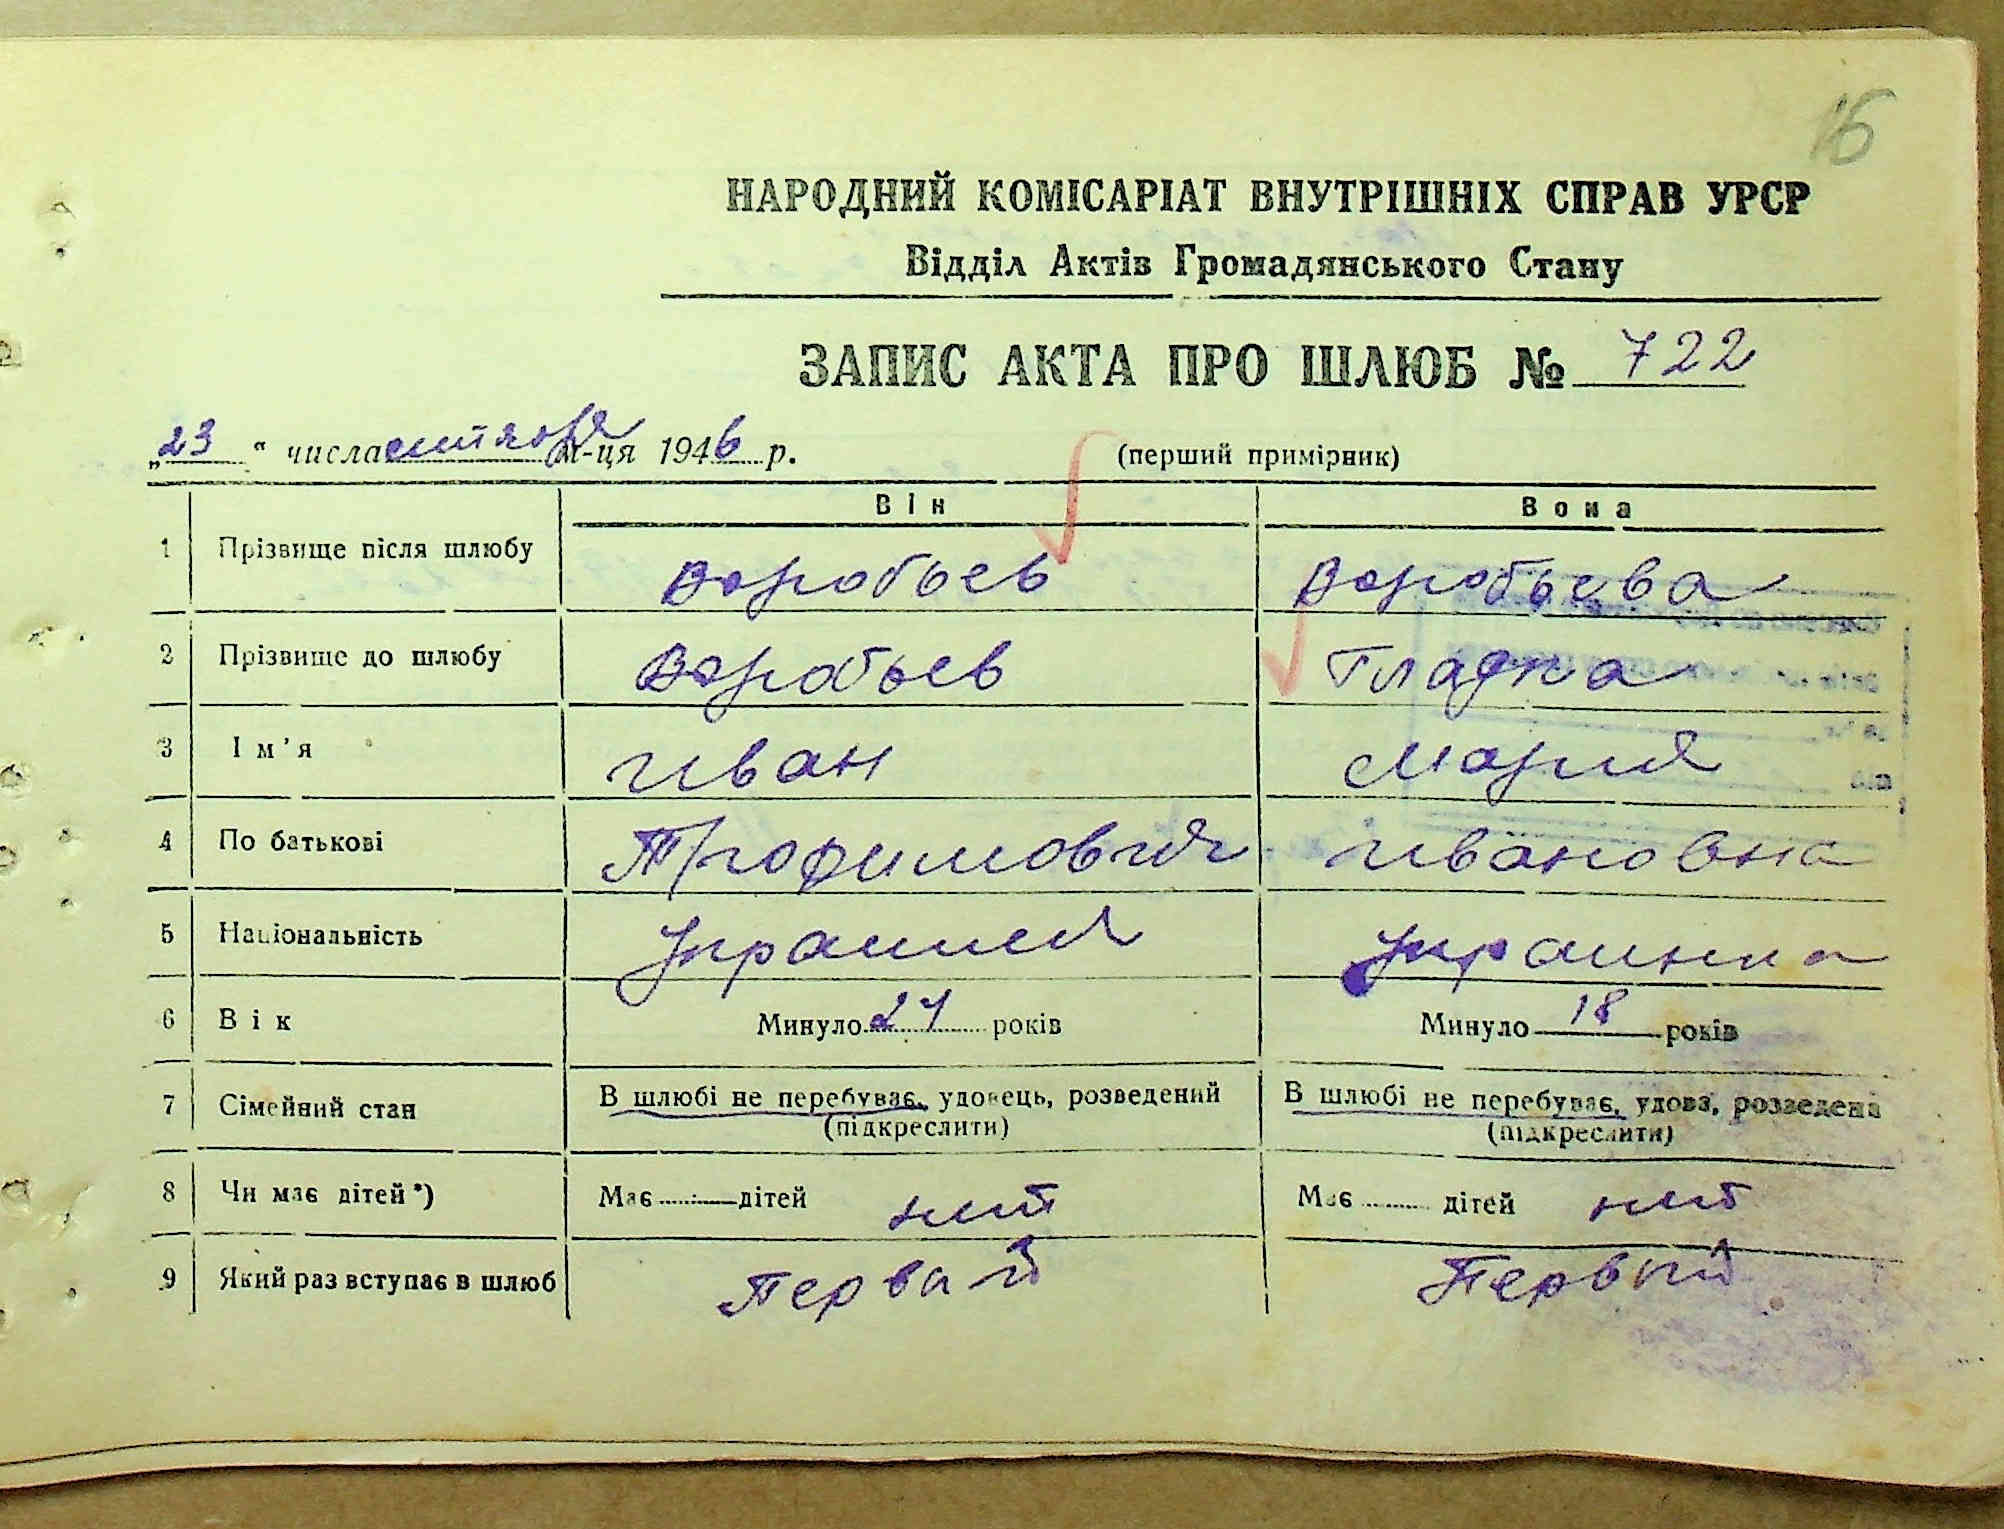 16
НАРОДНИЙ КОМІСАРІАТ ВНУТРІШНІХ СПРАВ УРСР
Відділ Актів Громадянського Стану
ЗАПИС АКТА ПРО ШЛЮБ № 722
„23“ числа октября м-ця 1946 р. (перший примірник)
Він Вона
1 Прізвище після шлюбу Воробьев Воробьева
2 Прізвище до шлюбу Воробьев Гладка
3 Ім’я Иван Мария
4 По батькові Трофимович Ивановна
5 Національність Украинец Украинка
6 Вік Минуло 24 років Минуло 18 років
7 Сімейний стан В шлюбі не перебуває, удовець, розведений В шлюбі не перебуває, удова, розведена
(підкреслити) (підкреслити)
8 Чи має дітей*) Має дітей нет Має дітей нет
9 Який раз вступає в шлюб Первый Первый